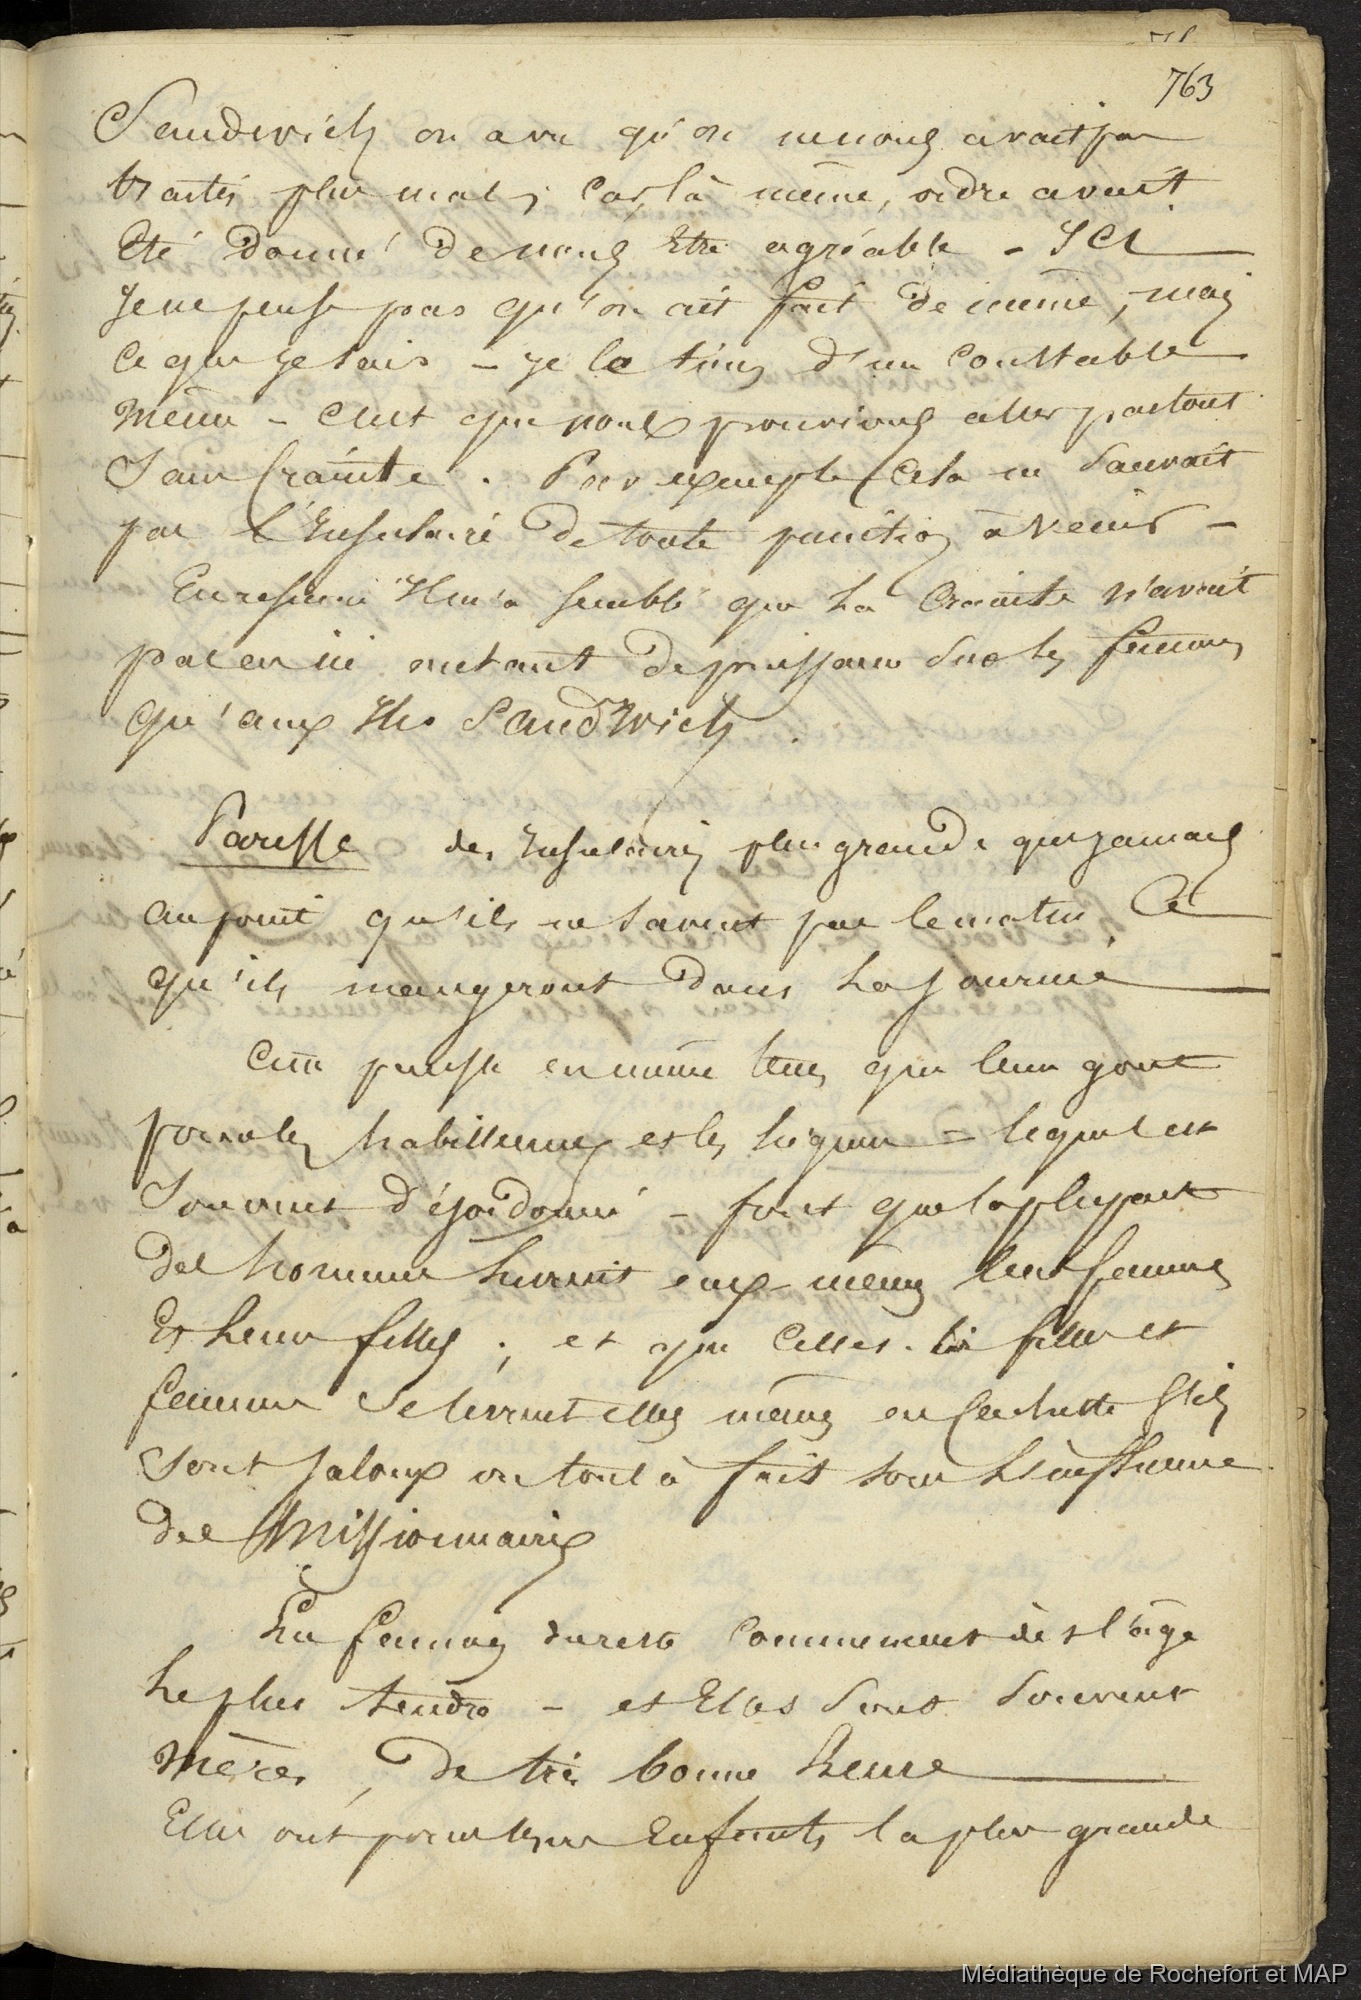 763
Sandwich on a vu qu'on ne nous avait pas
traités plus mal ; Car là même, ordre avait
été donné de nous Etre agréable - ICI
Je ne pense pas qu'on ait fait de même, mais
Ce que je sais - je le tiens d'un Constable
même - C'est que nous pouvions aller partout
Sans Crainte. Par exemple Cela ne Sauvait
pas l'Insulaire de toute punition à Venir -
En résumé Il m'a semblé que La Crainte n'avait
pas en ici autant de puissance Sur les femmes
qu'aux Iles Sandwich.
Paresse des Insulaires plus grande que jamais
au point qu'ils ne savent pas le matin Ce
qu'ils mangeront dans La journée
Cette paresse en même tems que leur gout
pour les habillemens et les liqueurs = lequel est
Souvent désordonné - font que la plupart
des hommes livrent eux-mêmes leurs femmes
Et Leurs filles ; et que Celles-ci filles et
femmes Se livrent elles mêmes en Cachette S'ils
Sont Jaloux ou tout à fait sous L'influence
des Missionnaires
Les femmes du reste Commencent dès l'âge
Le plus tendre - et Elles Sont Souvent
mères, de très bonne heure
Elles ont pour leurs Enfants la plus grande
Médiathèque de Rochefort et MAP